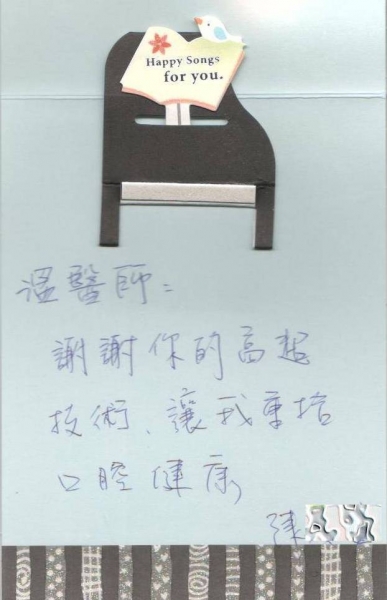 Happy Songs
for you.
溫醫師:
謝謝你的高超
技術、讓我重拾
口腔健康,
陳